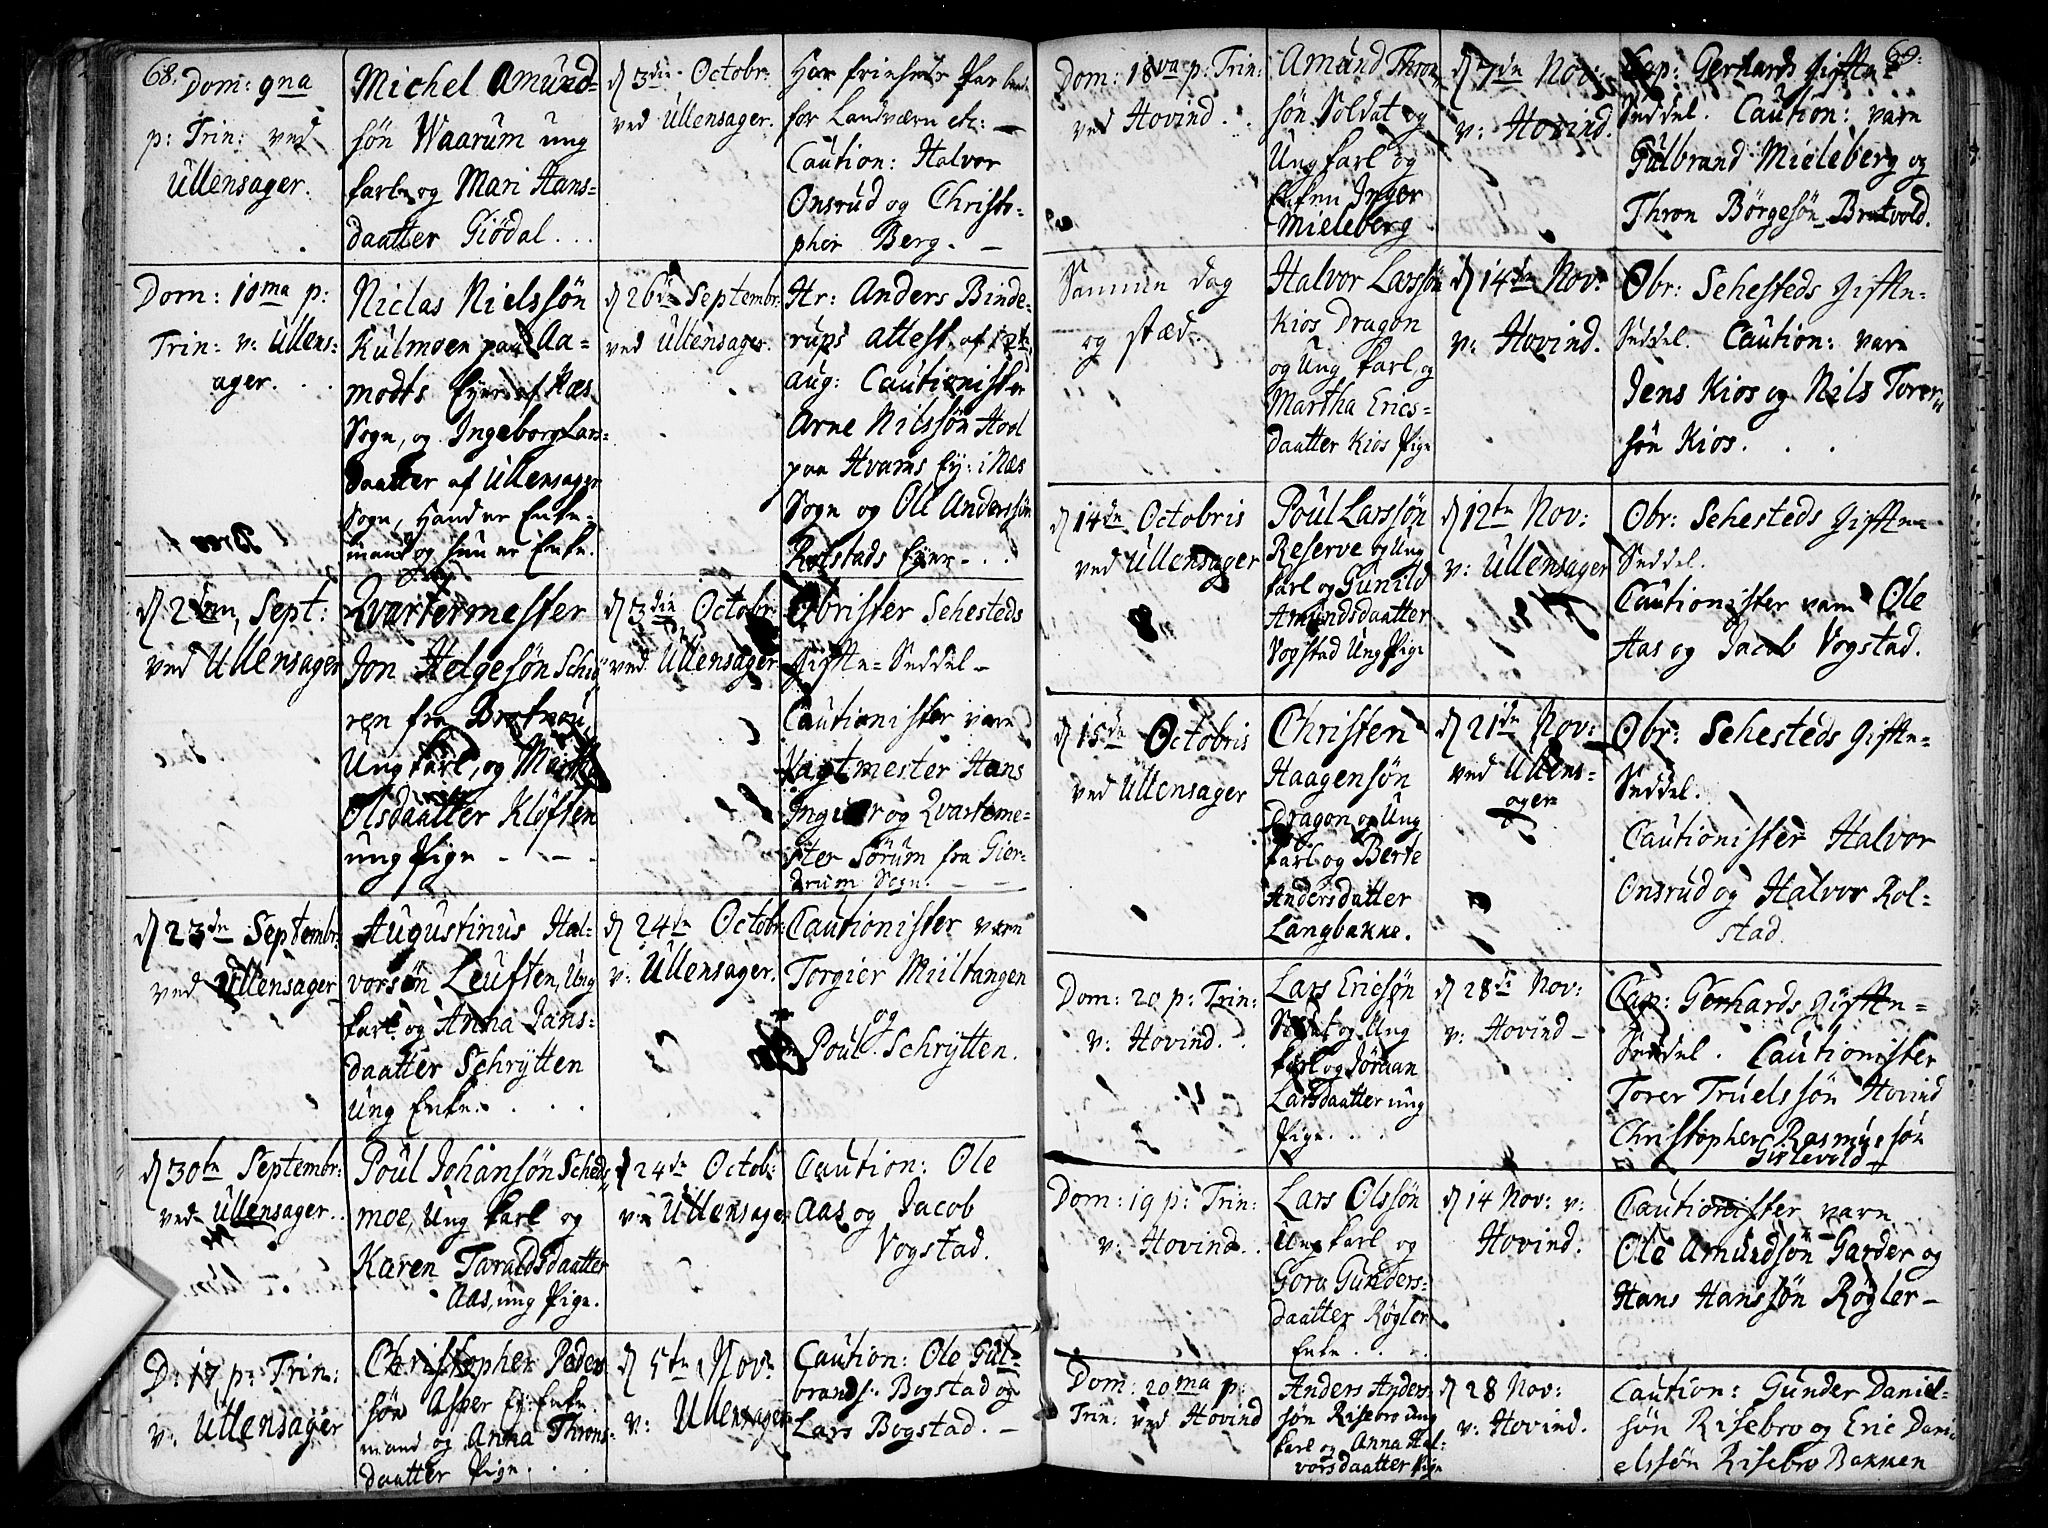 68.
Dom: 9na
p: Trin: ved
Ullensager.
Michel Amund-
søn Waarum ung
karl og Mari Hans-
daatter Giødal...
d 3die Octobr:
ved Ullensager.
Har
for Landværn etc: —
Caution: Halvor
Onsrud og Christo-
pher Berg. —
Dom: 10ma p:
Trin: v: Ullens-
ager...
Niclas Nielssøn
Kulmoen paa Aa-
modts Eyer af Næs
Sogn, og Ingeborg Lars-
daatter af Ullensager
Sogn, Hand er Enke-
mand og hun er Enke.
d 26de Septembr:
ved Ullensager.
Hr: Anders Binde-
rups attest. af 12te
aug: Cautionister
Arne Nilssøn Hool
paa Hvams Ey: i Næs
Sogn og Ole Anderssøn
Rolstads Eyer...
d 2den Sept:
ved Ullensager
Qvartermester
Jon Helgesøn Schiø-
ren fra
Ungkarl, og Marthe
Olsdaatter Kløften
ung Pige - - -
d 3die Octobr:
ved. Ullensager
Obrister Sehesteds
Gifte-Seddel -
Cautionister vare
Vagtmester Hans
og Qvarterme-
ster Sørum fra Gier-
drum Sogn. - -
d 23de Septembr:
ved Ullensager
Augustinus Hal-
vorsøn Leuften, Ung
karl og Anna Jans-
daatter Schrÿtten
Ung Enke....
d 24te Octobr:
v: Ullensager.
Cautionister vare
Torgier Miiltangen
og
Poul Schrÿtten.
d 30te Septembr:
ved Ullensager..
Poul Johansøn Sched-
moe, Ung karl og
Karen Taraldsdaatter
Aas, ung Pige.
d 24de Octob:
v: Ullensager
Caution: Ole
Aas og Jacob
Vogstad.
D: 17 p: Trin:
v: Ullensager
Christopher Peder-
søn Asper Ey: Enke
mand og Anna Throns-
daatter Pige...
d 5te Nov:
v: Ullensager
Caution: Ole Gul-
brands: Bogstad og
Lars Bogstad. —
69.
Dom: 18va p: Trin:
ved Hovind..
Amund Thron-
søn Soldat og
Ung karl og
Enken Inger
Mieleberg
d 7de Nov:
v: Hovind.
Cap: Gerhards Gifte-
Seddel. Caution: vare
Gulbrand Mieleberg og
Thron Børgesøn Bratvold.
Samme dag
og stæd.
Halvor Larssøn
Kios Dragon
og Ung karl, og
Martha Erics-
daatter Kios Pige
d 14de Nov:
v: Hovind.
Obr: Sehesteds Gifte-
Seddel. Caution: vare
Jens Kios og Nils Torer-
søn Kios...
d 14de Octobris
ved Ullensager
Poul Larssøn
Reserve og Ung
karl og Gunild
Amundsdaatter
Vogstad Ung Pige
d 12te Nov:
v: Ullensager
Obr: Sehesteds Gifte-
Seddel.
Cautionister vare Ole
Aas og Jacob Vogstad.
d 15de Octobris
ved Ullensager
Christen
Haagensøn
Dragon og Ung
karl og Berte
Andersdatter
Langbakke.
d 21de Nov:
ved Ullens-
ager
Obr: Sehesteds Gifte-
Seddel.
Cautionister Halvor
Onsrud og Halvor Rol-
stad.
Dom: 20 p: Trin:
v: Hovind..
Lars Ericsøn
Soldat og Ung
karl og Jøraan
Larsdaatter ung
Pige...
d 28de Nov:
v: Hovind -
Cap: Gerhards Gifte-
Seddel. Cautionister
Torer Truelssøn Hovind
Christopher Rasmussøn
Gislevold
Dom: 19 p: Trin:
v: Hovind..
Lars Olssøn
Ung karl og
Goro Gunders-
daatter Røgler
Enke...
d 14 Nov: v:
Hovind:
Cautionister vare
Ole Amundsøn Garder og
Hans Hanssøn Røgler -
Dom: 20ma p:
Trin: ved Hovind
Anders Anders-
søn Risebro ung
karl og Anna Hal-
vorsdaatter Pige
d 28 Nov:
v: Hovind.
Caution: Gunder Daniel-
søn Risebro og Eric Dani-
elssøn Risebro Bakken